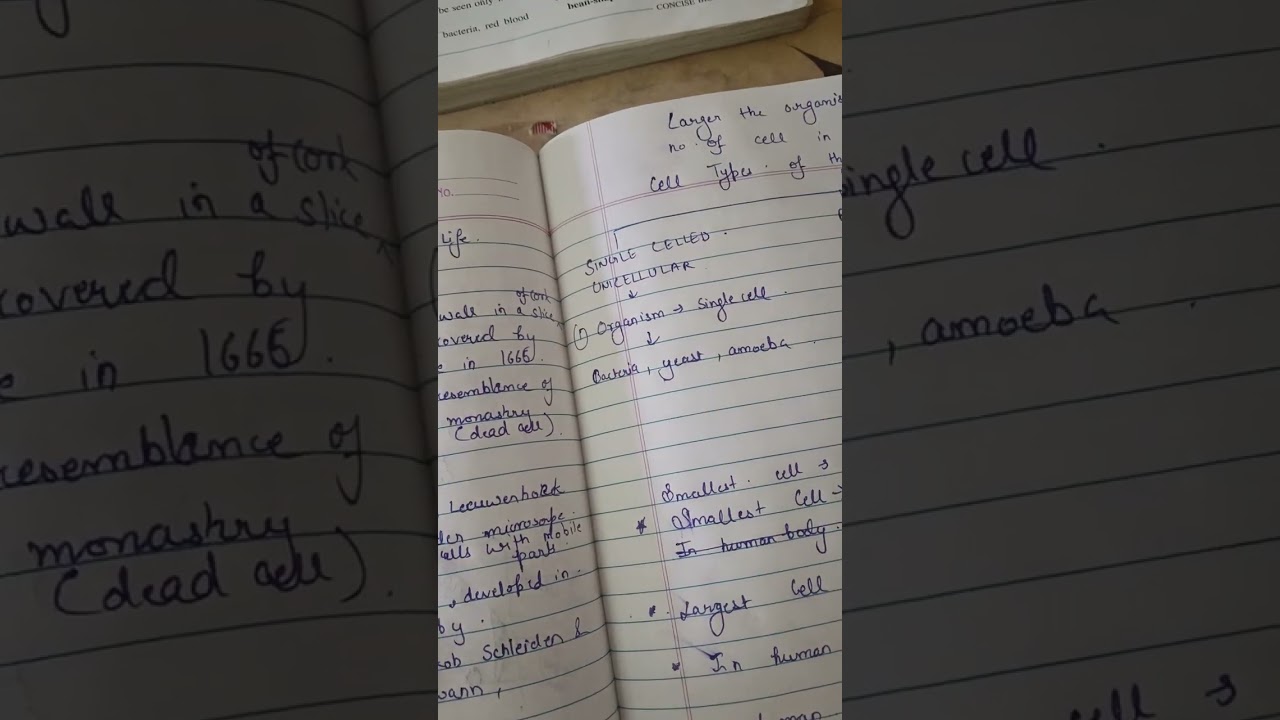 be seen only
bacteria, red blood
bean-sha
CONCISE
No.
Life.
of cork
wall in a slice
covered by
e in 1665.
resemblance of
monastry
(dead cell).
Leeuwenhoek
microsope.
cells with mobile
part.
developed in.
by.
ob Schleiden &
wann,
Larger the organis
no. of cell in
Cell Types of th
SINGLE CELLED.
UNICELLULAR
↓
(1) Organism → single cell.
↓
Bacteria, yeast, amoeba.
Smallest cell →
* Smallest Cell →
In human body.
* Largest Cell
* In human
of cork
wall in a slice
covered by
e in 1665.
resemblance of
monastry
(dead cell).
single cell.
, amoeba.
cell →